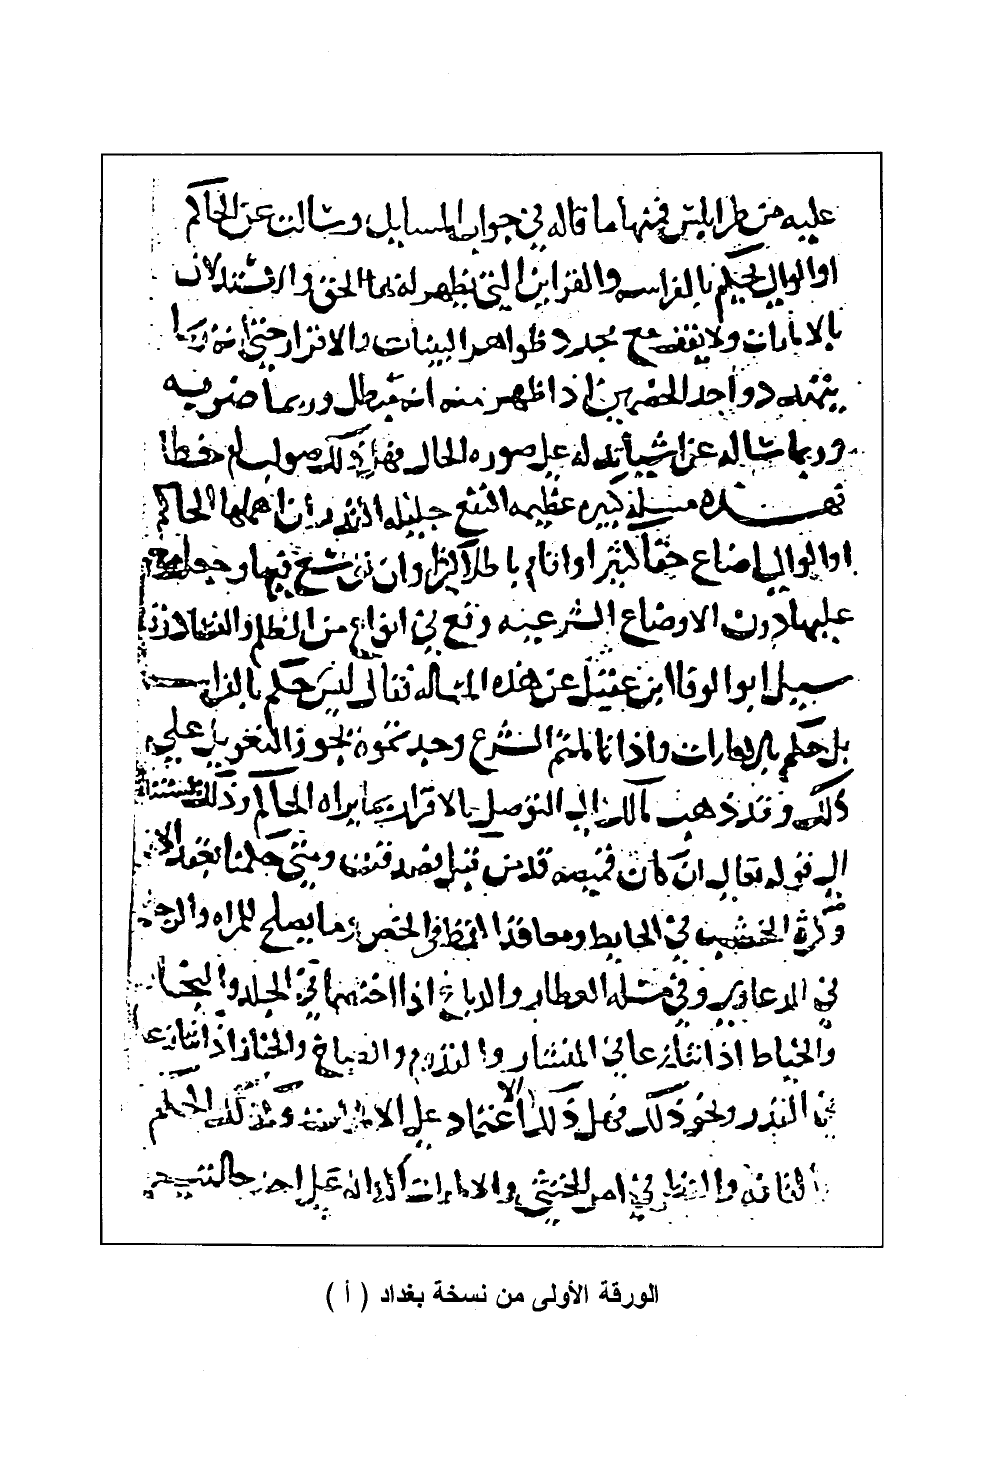 عليه من طرابلس فمنها ما قاله في جواب المسايل وسالت عن الحاكم
او الوالي يحكم بالفراسه والقراين التي يظهر له بها الحق والاستدلال
بالامارات ولا يقف مع مجرد ظواهر البينات والاقرار حتى انه ربما
يتهدد احد الخصمين اذا ظهر منه انه مبطل وربما ضربه
وربما ساله عن اشيا تدله على صوره الحال فهل ذلك صواب ام خطا
فهذه مسله كبيره عظيمه النفع جليله القدر ان اهملها الحاكم
او الوالي اضاع حقا كثيرا واقام باطلا كثيرا وان توسع فيها وجعل معوله
عليها دون الاوضاع الشرعيه وقع في انواع من الظلم والفساد وقد
سيل ابو الوفا ابن عقيل عن هذه المساله فقال ليس حكم بالفراسه
بل حكم بالامارات واذا تاملتم الشرع وجدتموه يجوز التعويل على
ذلك وقد ذهب مالك الى التوصل بالاقرار بما يراه الحاكم وذلك مستند
الى قوله تعالى ان كان قميصه قد من قبل فصدقت ومتى حكمنا بعقد الازج
وكثرة الخشب في الحايط ومعاقد القمط في الخص وما يصلح للمراه والرجل
في الدعاوى وفي مسله العطار والدباغ اذا اختصما في الجلد والنجار
والخياط اذا تنازعا في المنشار والقدوم والطباخ والخباز اذا تنازعا
في القدر ونحو ذلك فهل ذلك الا اعتماد على الامارات وكذلك الحكم
بالقافه والنظر في امر الخنثى والامارات الداله على احد حالتيه
الورقة الأولى من نسخة بغداد ( أ )